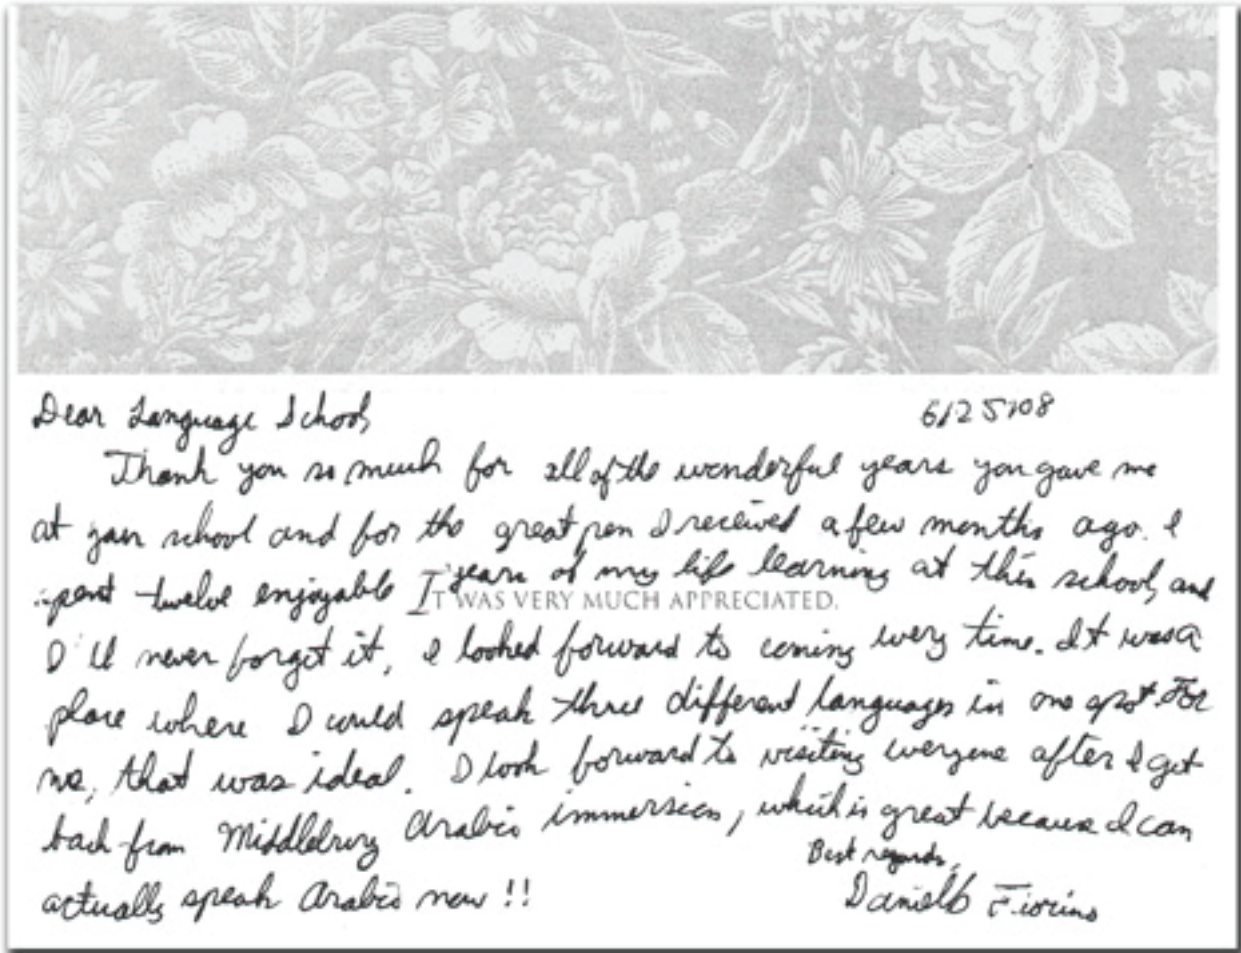 Dear Language School, 6/25/08
Thank you so much for all of the wonderful years you gave me
at your school and for the great pen I received a few months ago. I
spent twelve enjoyable years of my life learning at this school, and
IT WAS VERY MUCH APPRECIATED.
I'll never forget it, I looked forward to coming every time. It was a
place where I could speak three different languages in one spot. For
me, that was ideal. I look forward to visiting everyone after I get
back from Middlebury Arabic immersion, which is great because I can
actually speak Arabic now!!
Best regards,
Danielle Fiorino